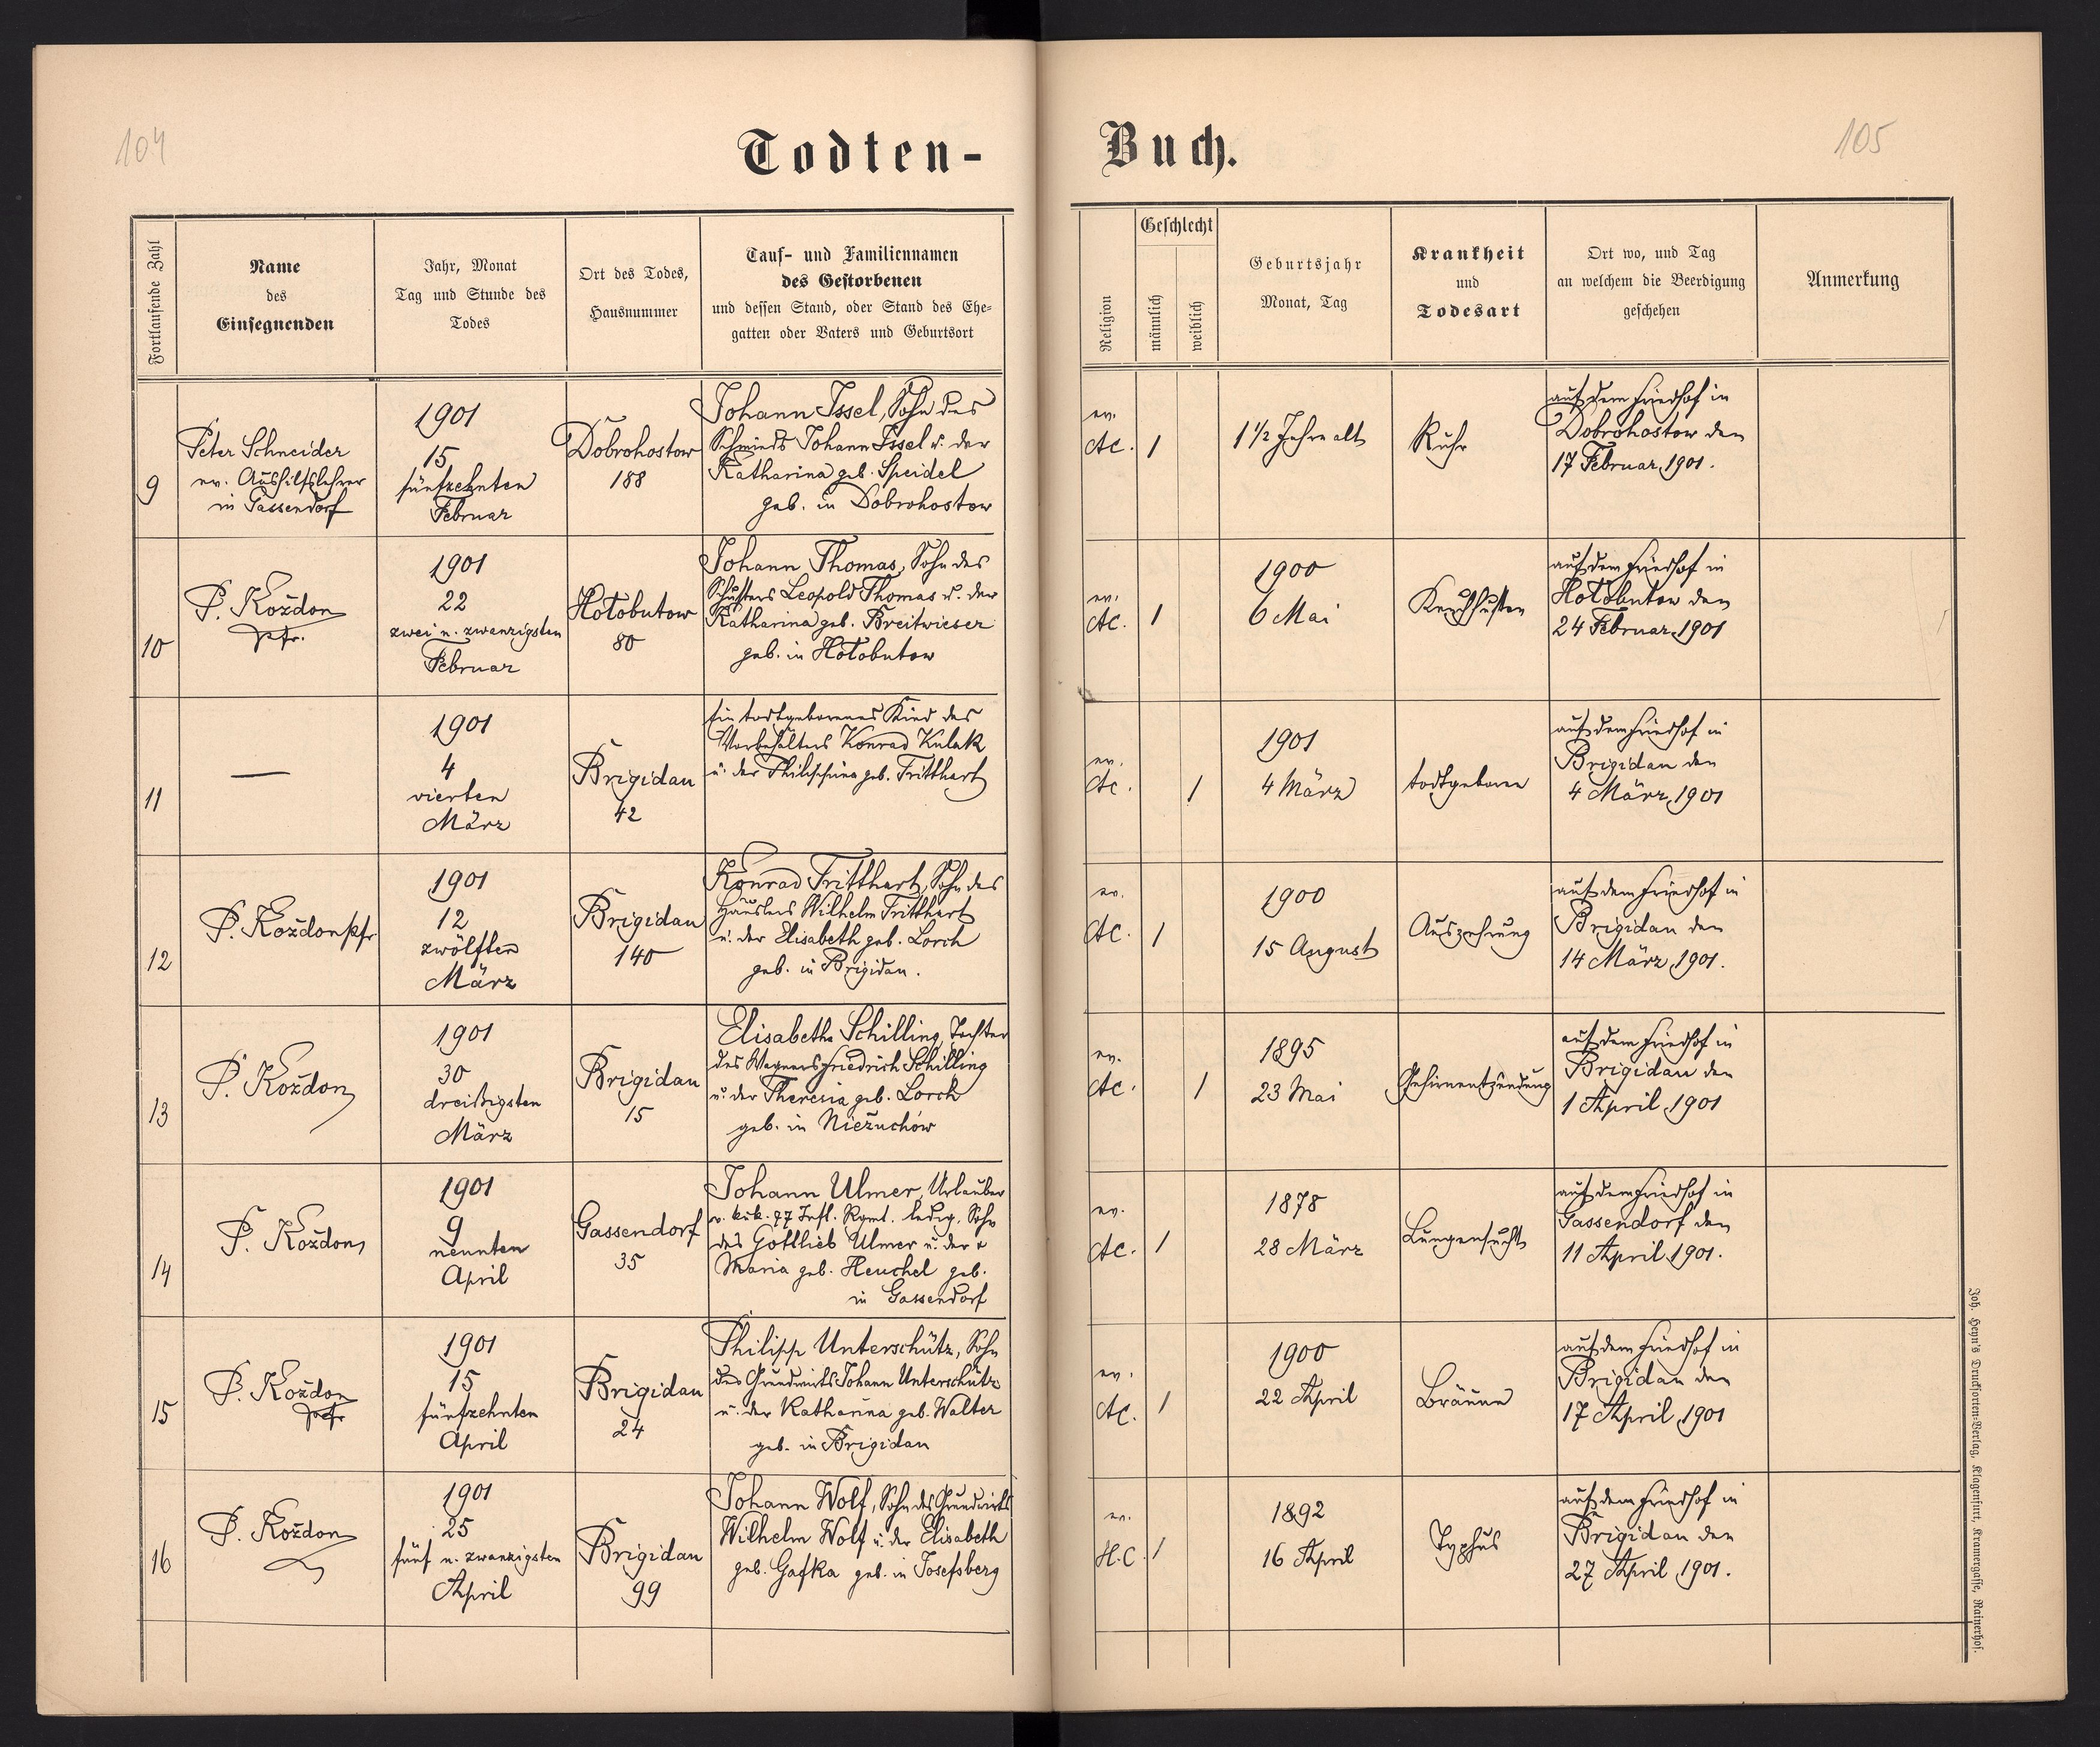 104
Todten-
Buch.
105
Fortlaufende Zahl
Name
des
Einsegnenden
Jahr, Monat
Tag und Stunde des
Todes
Ort des Todes,
Hausnummer
Tauf- und Familiennamen
des Gestorbenen
und dessen Stand, oder Stand des Ehe-
gatten oder Vaters und Geburtsort
Religion
Geschlecht
männlich
weiblich
Geburtsjahr
Monat, Tag
Krankheit
und
Todesart
Ort wo, und Tag
an welchem die Beerdigung
geschehen
Anmerkung
9
Peter Schneider
ev. Aushilfslehrer
in Gassendorf
1901
15
fünfzehnten
Februar
Dobrohostow
188
Johann Issel, Sohn des
Schmieds Johann Issel u. der
Katharina geb. Speidel
geb. in Dobrohostow
ev.
AC. 1
1 1/2 Jahre alt
Ruhr
auf dem Friedhof in
Dobrohostow den
17 Februar 1901.
10
P. Koždon
Pfr.
1901
22
zwei u. zwanzigsten
Februar
Hołobutow
80
Johann Thomas, Sohn des
Schusters Leopold Thomas u. der
Katharina geb. Breitwieser
geb. in Hołobutow
ev.
AC. 1
1900
6 Mai
Keuchhusten
auf dem Friedhof in
Hołobutow den
24 Februar 1901
11
—
1901
4
vierten
März
Brigidau
42
Ein todtgeborenes Kind des
Vorbehälters Konrad Kulak
u. der Philippina geb. Fritthart
ev.
AC. 1
1901
4 März
todtgeboren
auf dem Friedhof in
Brigidau den
4 März 1901
12
P. Koždon pfr
1901
12
zwölften
März
Brigidau
140
Konrad Fritthart, Sohn des
Häuslers Wilhelm Fritthart
u. der Elisabeth geb. Lorch
geb. in Brigidau.
ev.
AC. 1
1900
15 August
Auszehrung
auf dem Friedhof in
Brigidau den
14 März 1901.
13
P. Koždon
1901
30
dreißigsten
März
Brigidau
15
Elisabeth Schilling, Tochter
des Wagners Friedrich Schilling
u. der Theresia geb. Lorch
geb. in Nieżuchów
ev.
AC. 1
1895
23 Mai
Gehirnentzündung
auf dem Friedhof in
Brigidau den
1 April 1901
14
P. Koždon
1901
9
neunten
April
Gassendorf
35
Johann Ulmer, Urlauber
v. k.u.k. 77 Inft. Rgmt. ledig, Sohn
des Gottlieb Ulmer u. der
Maria geb. Heuchel geb.
in Gassendorf
ev.
AC. 1
1878
28 März
Lungensucht
auf dem Friedhof in
Gassendorf den
11 April 1901.
15
P. Koždon
Pfr
1901
15
fünfzehnten
April
Brigidau
24
Philipp Unterschütz, Sohn
des Grundwirts Johann Unterschütz
u. der Katharina geb. Walter
geb. in Brigidau
ev.
AC. 1
1900
22 April
Bräune
auf dem Friedhof in
Brigidau den
17 April 1901
16
P. Koždon
1901
25
fünf u. zwanzigsten
April
Brigidau
99
Johann Wolf, Sohn des Grundwirts
Wilhelm Wolf u. der Elisabeth
geb. Gafka geb. in Josefsberg
ev.
H.C. 1
1892
16 April
Typhus
auf dem Friedhof in
Brigidau den
27 April 1901.
Joh. Heyn's Drucksorten-Verlag, Klagenfurt, Kramergasse, Rainerhof.